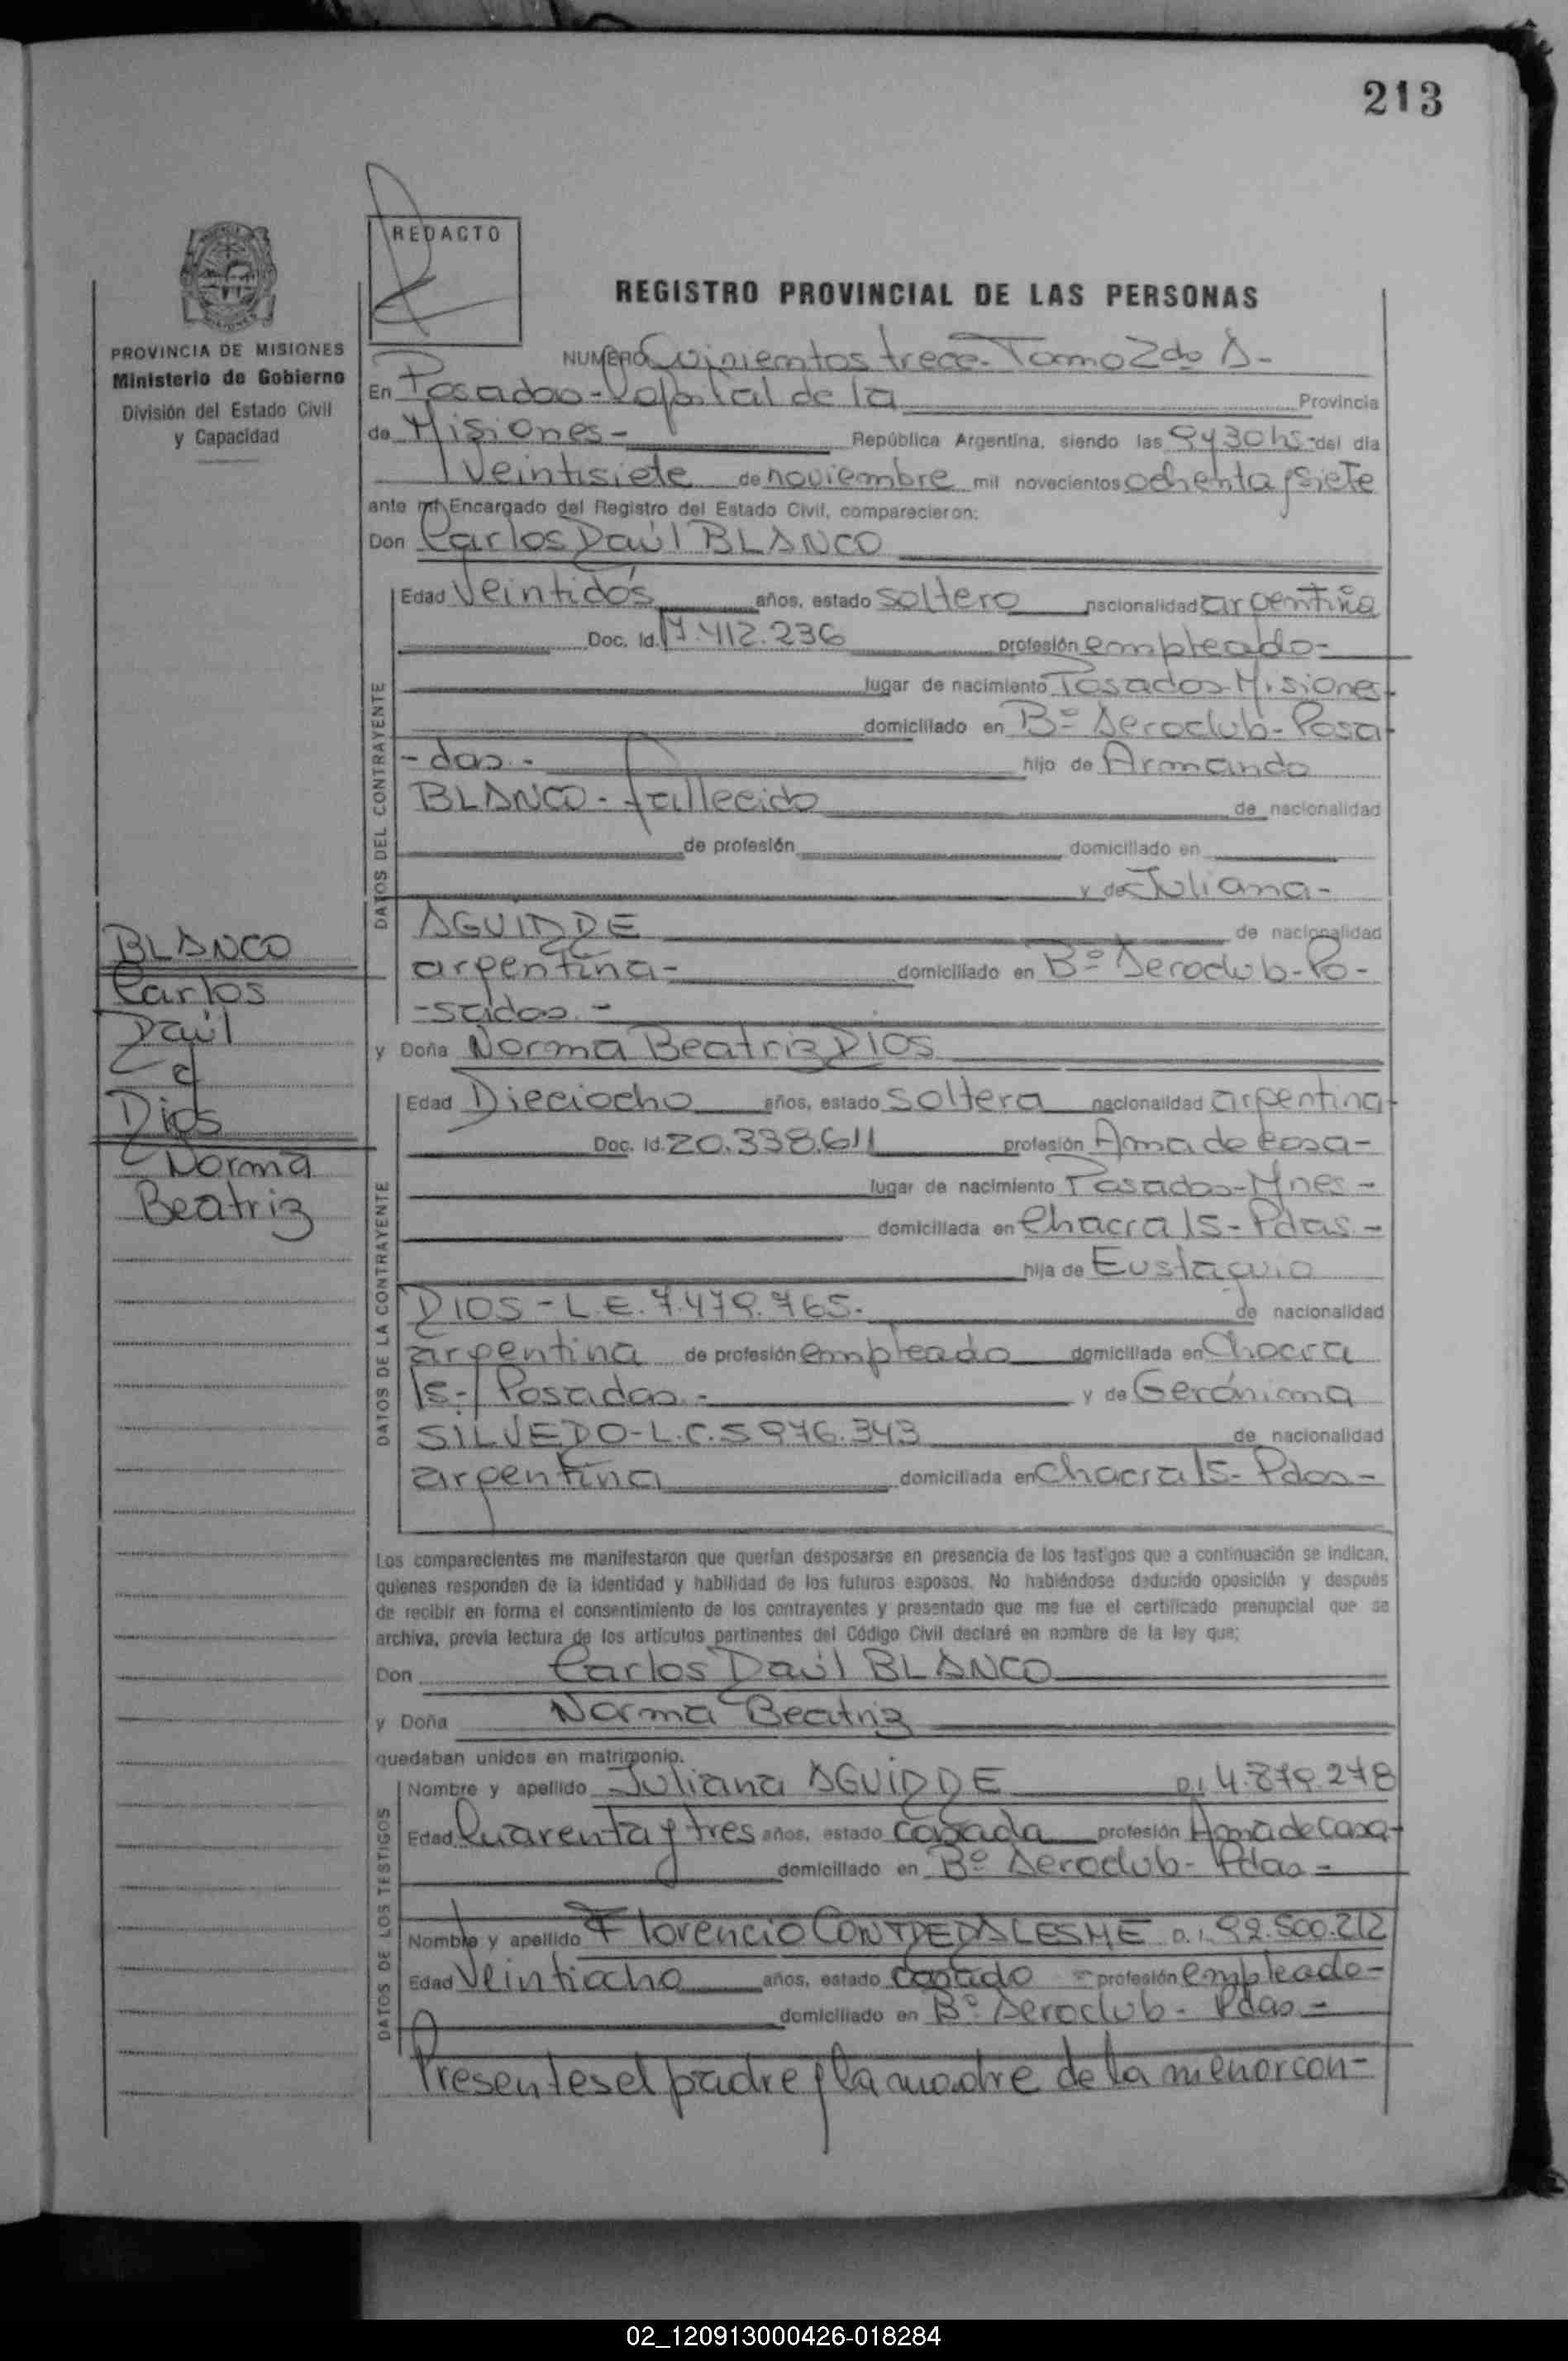 213
REDACTO
REGISTRO PROVINCIAL DE LAS PERSONAS
PROVINCIA DE MISIONES
Ministerio de Gobierno
División del Estado Civil
y Capacidad
NUMERO Quinientos trece - Tomo 2do A-
En Posadas - Capital de la Provincia
de Misiones - República Argentina, siendo las 9y30hs- del día
Veintisiete de noviembre mil novecientos ochenta y siete
ante mi Encargado del Registro del Estado Civil, comparecieron:
Don Carlos Raúl BLANCO
DATOS DEL CONTRAYENTE
Edad Veintidós años, estado soltero nacionalidad argentina
Doc. Id. 17.412.236 profesión empleado-
lugar de nacimiento Posadas-Misiones-
domiciliado en Bº Aeroclub- Posa-
- das - hijo de Armando
BLANCO - fallecido de nacionalidad
de profesión domiciliado en
y de Juliana-
AGUIRRE de nacionalidad
argentina- domiciliado en Bº Aeroclub-Po-
-sadas. -
y Doña Norma Beatriz DIOS
BLANCO
Carlos
Raúl
c/
Dios
Norma
Beatriz
DATOS DE LA CONTRAYENTE
Edad Dieciocho años, estado soltera nacionalidad argentina-
Doc. Id. 20.338.611 profesión Ama de casa-
lugar de nacimiento Posadas-Mnes-
domiciliada en Chacra 15- Pdas-
hija de Eustaquio
DIOS - L.E. 7.479.765. de nacionalidad
argentina de profesión empleado domiciliada en Chacra
15- Posadas.- y de Gerónima
SILVERO-L.C.5976.343 de nacionalidad
argentina domiciliada en Chacra 15- Pdas-
Los comparecientes me manifestaron que querían desposarse en presencia de los testigos que a continuación se indican,
quienes responden de la identidad y habilidad de los futuros esposos. No habiéndose deducido oposición y después
de recibir en forma el consentimiento de los contrayentes y presentado que me fue el certificado prenupcial que se
archiva, previa lectura de los artículos pertinentes del Código Civil declaré en nombre de la ley que;
Don Carlos Raúl BLANCO
y Doña Norma Beatriz
quedaban unidos en matrimonio.
DATOS DE LOS TESTIGOS
Nombre y apellido Juliana AGUIRRE D.I 4.879.278
Edad Cuarenta y tres años, estado casada profesión Ama de casa-
domiciliado en Bº Aeroclub- Pdas-
Nombre y apellido Florencio CONTRERAS LESME D.I. 92.500.212
Edad Veintiocho años, estado casado - profesión empleado-
domiciliado en Bº Aeroclub- Pdas-
Presentes el padre y la madre de la menor con-
02_120913000426-018284